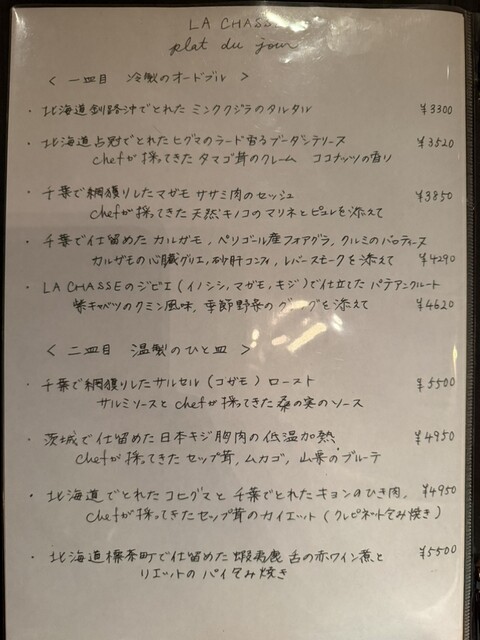 LA CHASSE
plat du jour
< 一皿目 冷製のオードブル >
・北海道釧路沖でとれた ミンククジラのタルタル ¥3300
・北海道占冠でとれたヒグマのラード香るブーダンテリーヌ ¥3520
chefが採ってきた タマゴ茸のクレーム ココナッツの香り
・千葉で網獲りしたマガモ ササミ肉のセッシュ ¥3850
chefが採ってきた 天然キノコのマリネとピュレを添えて
・千葉で仕留めた カルガモ, ペリゴール産フォアグラ, クルミのバロティーヌ
カルガモの心臓グリエ, 砂肝コンフィ, レバースモークを添えて ¥4290
・LA CHASSEのジビエ (イノシシ, マガモ, キジ) で仕立てた パテアンクルート
紫キャベツのクミン風味, 季節野菜の を添えて ¥4620
< 二皿目 温製のひと皿 >
・千葉で網獲りしたサルセル (コガモ) ロースト ¥5500
サルミソースと chefが採ってきた 桑の実のソース
・茨城で仕留めた 日本キジ胸肉の低温加熱 ¥4950
chefが採ってきた セップ茸, ムカゴ, 山栗のブルーテ
・北海道でとれた コヒグマと 千葉でとれた キョンのひき肉, ¥4950
chefが採ってきたセップ茸のカイエット (クレピネット包み焼き)
・北海道標茶町で仕留めた 蝦夷鹿 舌の赤ワイン煮と ¥5500
リエットの パイ包み焼き